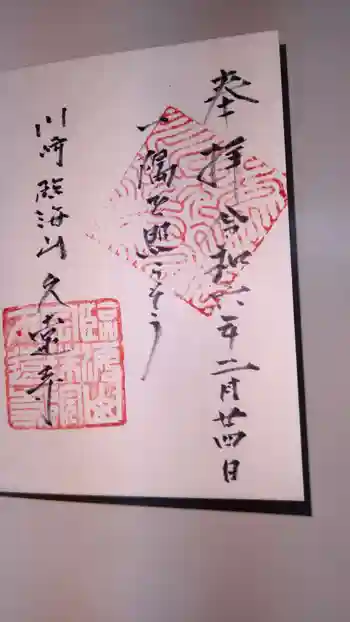 奉拝 令和六年二月廿四日
一隅を照らそう
川崎臨海山久遠寺